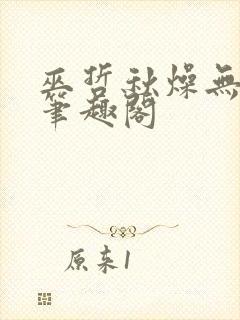 巫哲秋燥無
筆趣閣
原来1